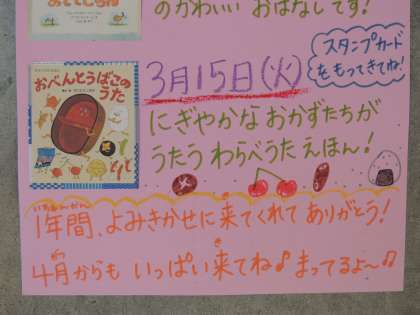 のかわいい おはなしです!
スタンプカード
をもってきてね!
3月15日(火)
おべんとうばこの
うた
にぎやかな おかずたちが
うたう わらべうた えほん!
1年間、よみきかせに来てくれて ありがとう!
いちねんかん き
4月からも いっぱい来てね♪ まってるよ〜♫
がつ き